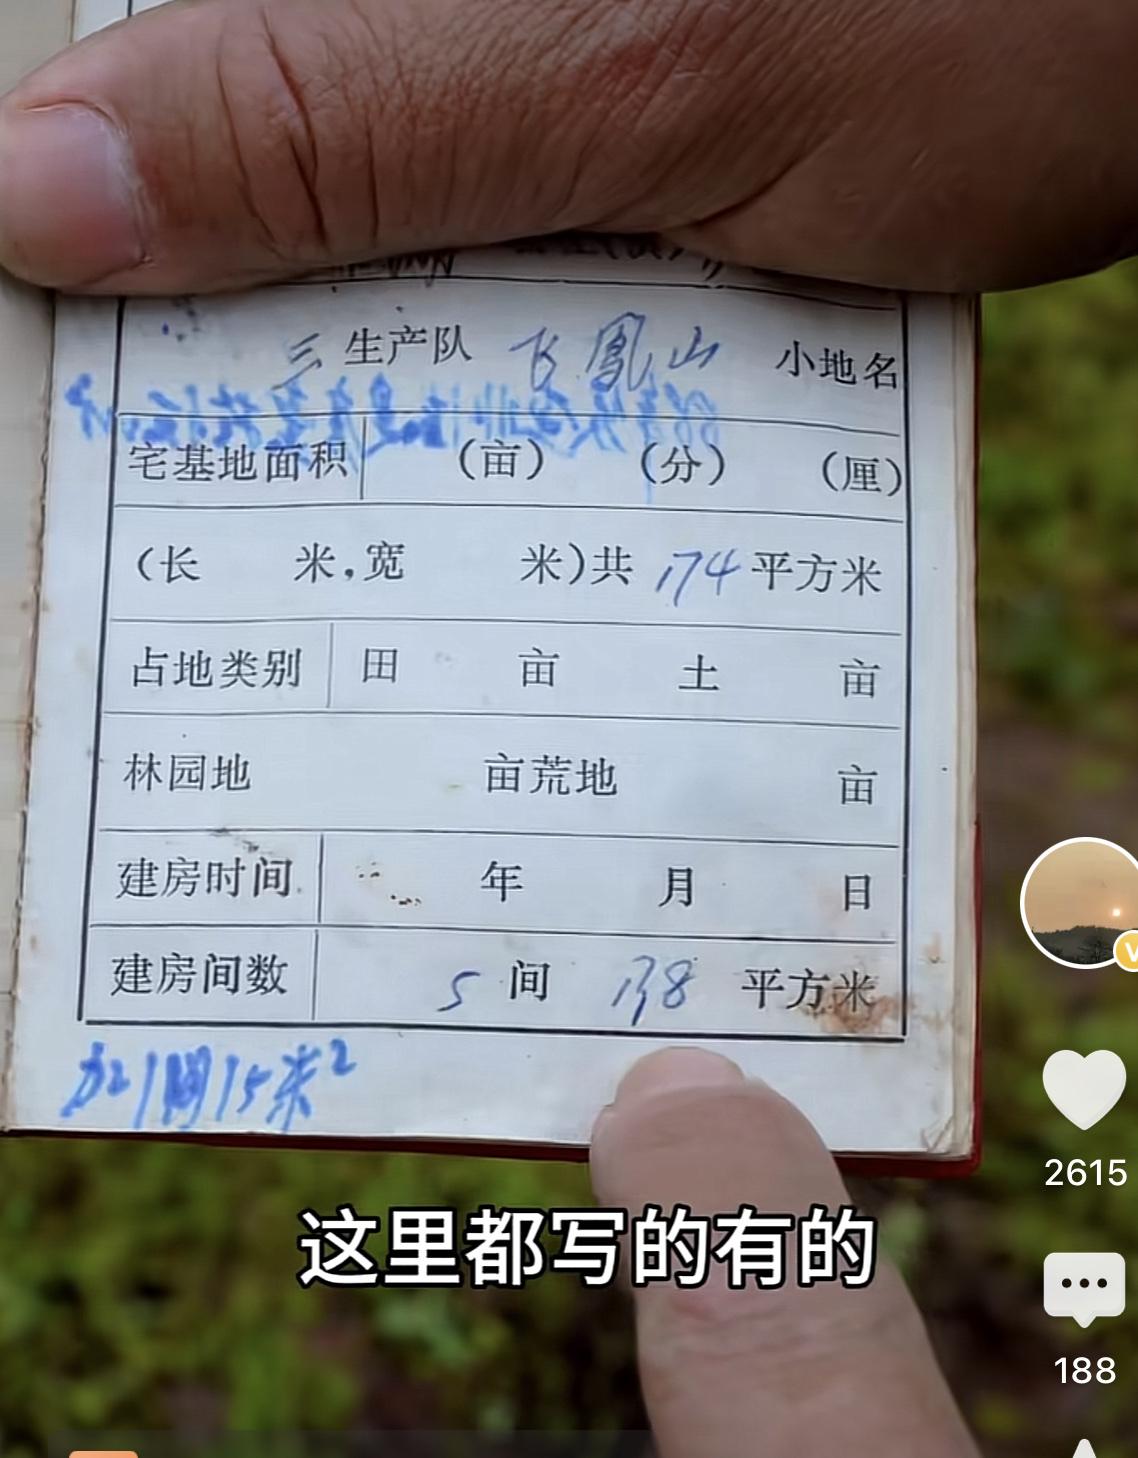 三 生产队 飞凤山 小地名
宅基地面积 (亩) (分) (厘)
(长 米,宽 米)共 174 平方米
占地类别 田 亩 土 亩
林园地 亩荒地 亩
建房时间 年 月 日
建房间数 5 间 138 平方米
加1間15米²
这里都写的有的
2615
188